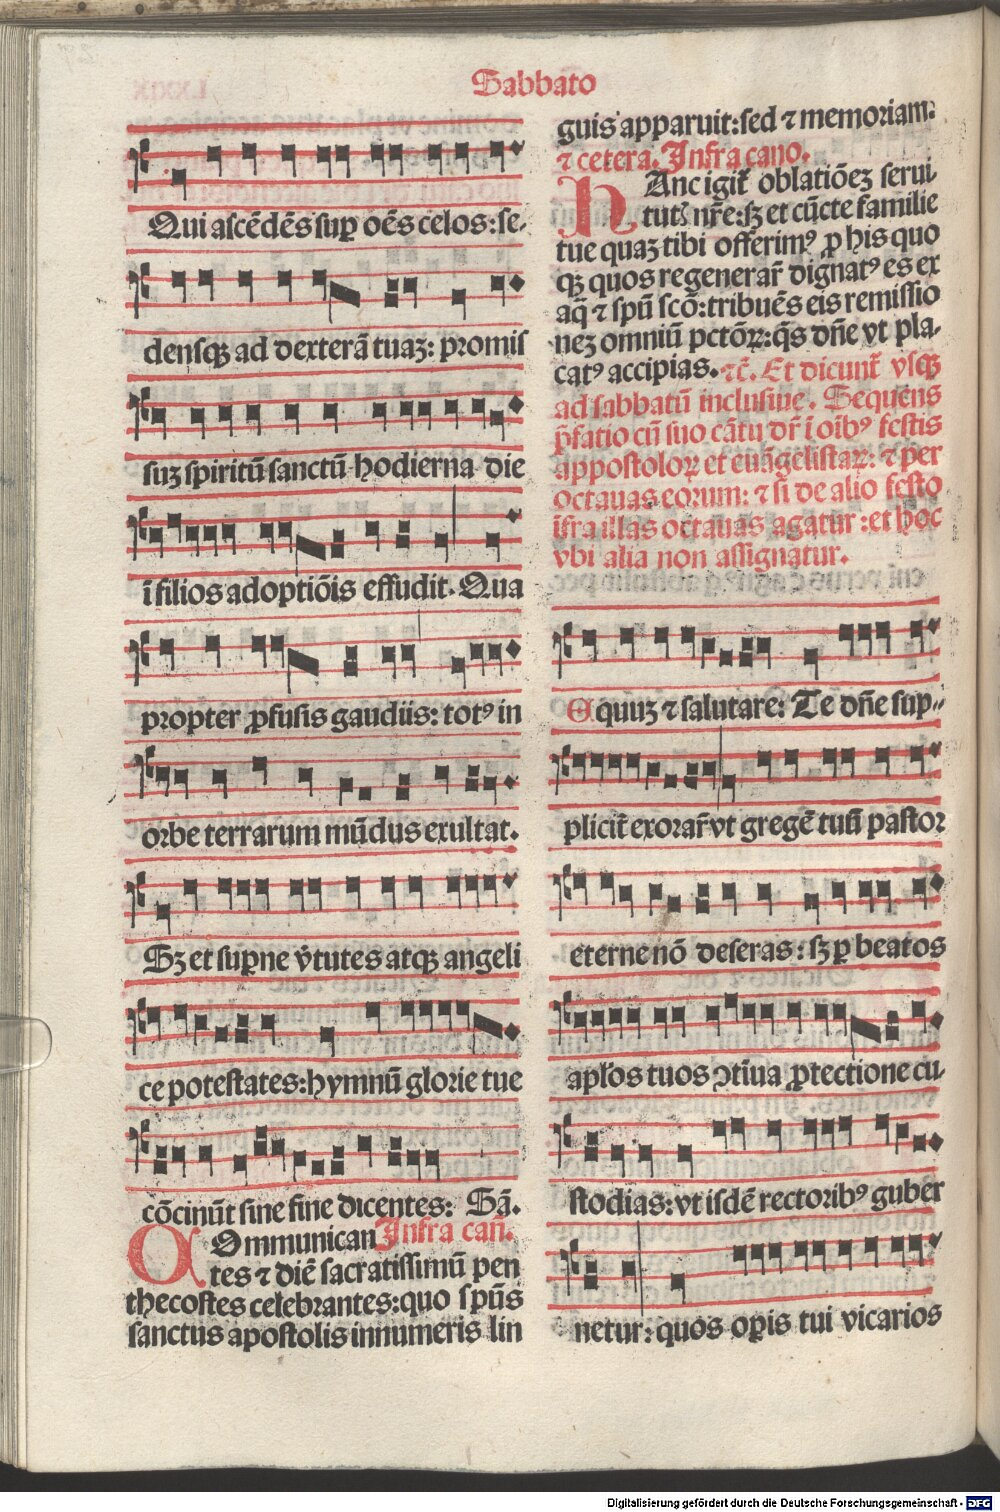 Sabbato
Qui ascēdēs suꝑ oēs celos: se-
densqꝫ ad dexterā tuaꝫ: promis
suꝫ spiritū sanctū hodierna die
ī filios adoptiōis effudit. Qua
propter ꝓfusis gaudiis: totꝰ in
orbe terrarum mūdus exultat.
Sꝫ et suꝑne v̄tutes atqꝫ angeli
ce potestates: hymnū glorie tue
cōcinūt sine fine dicentes: Sā.
COmmunican Infra can̄.
tes ⁊ diē sacratissimū pen
thecostes celebrantes: quo spūs
sanctus apostolis innumeris lin
guis apparuit: sed ⁊ memoriam.
⁊ cetera. Infra cano.
HAnc igit̄ oblatiōeꝫ serui-
tutꝭ nr̄e: sꝫ et cūcte familie
tue quaꝫ tibi offerimꝰ ꝓ his quo
qꝫ quos regenerar̄ dignatꝰ es ex
aq̄ ⁊ spū scō: tribuēs eis remissio
neꝫ omniū pctōꝝ: q̄s dn̄e vt pla-
catꝰ accipias. ⁊c̄. Et dicunt̄ vsqꝫ
ad sabbatū inclusiue. Sequens
p̄fatio cū suo cātu dr̄ ī oībꝰ festis
appostoloꝝ et euāgelistaꝝ: ⁊ per
octauas eorum: ⁊ si de alio festo
īfra illas octauas agatur: et hoc
vbi alia non assignatur.
Equuꝫ ⁊ salutare: Te dn̄e sup-
plicit̄ exorar̄ vt gregē tuū pastor
eterne nō deseras: sꝫ ꝑ beatos
apl̄os tuos ↄtīua ꝓtectione cu-
stodias: vt isdē rectoribꝰ guber
netur: quos oꝑis tui vicarios
Digitalisierung gefördert durch die Deutsche Forschungsgemeinschaft - DFG